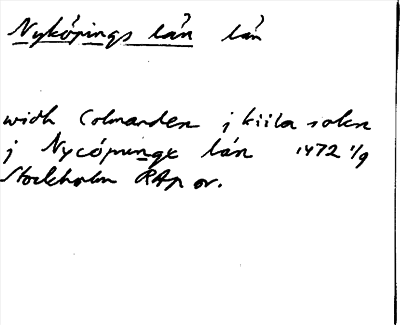 Nyköpings län län
widh Colmarden j kiila sokn
j Nycópungx län 1472 1/9
Stockholm RAp or.